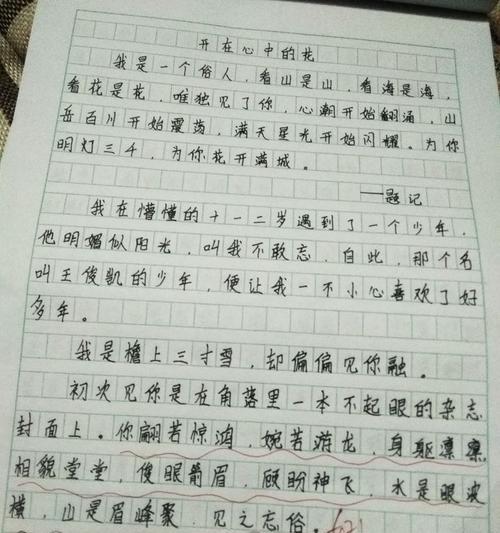 开在心中的花
我是一个俗人，看山是山，看海是海，
看花是花，唯独见了你，心潮开始翻涌，山
岳百川开始震荡，满天星光开始闪耀。为你
明灯三千，为你花开满城。
——题记
我在懵懂的十一二岁遇到了一个少年，
他明媚似阳光，叫我不敢忘，自此，那个名
叫王俊凯的少年，便让我一不小心喜欢了好
多年。
我是檐上三寸雪，却偏偏见你融。
初次见你是在角落里一本不起眼的杂志
封面上。你翩若惊鸿，婉若游龙，身躯凛凛
相貌堂堂，俊眼箭眉，顾盼神飞，水是眼波
横，山是眉峰聚，见之忘俗。好